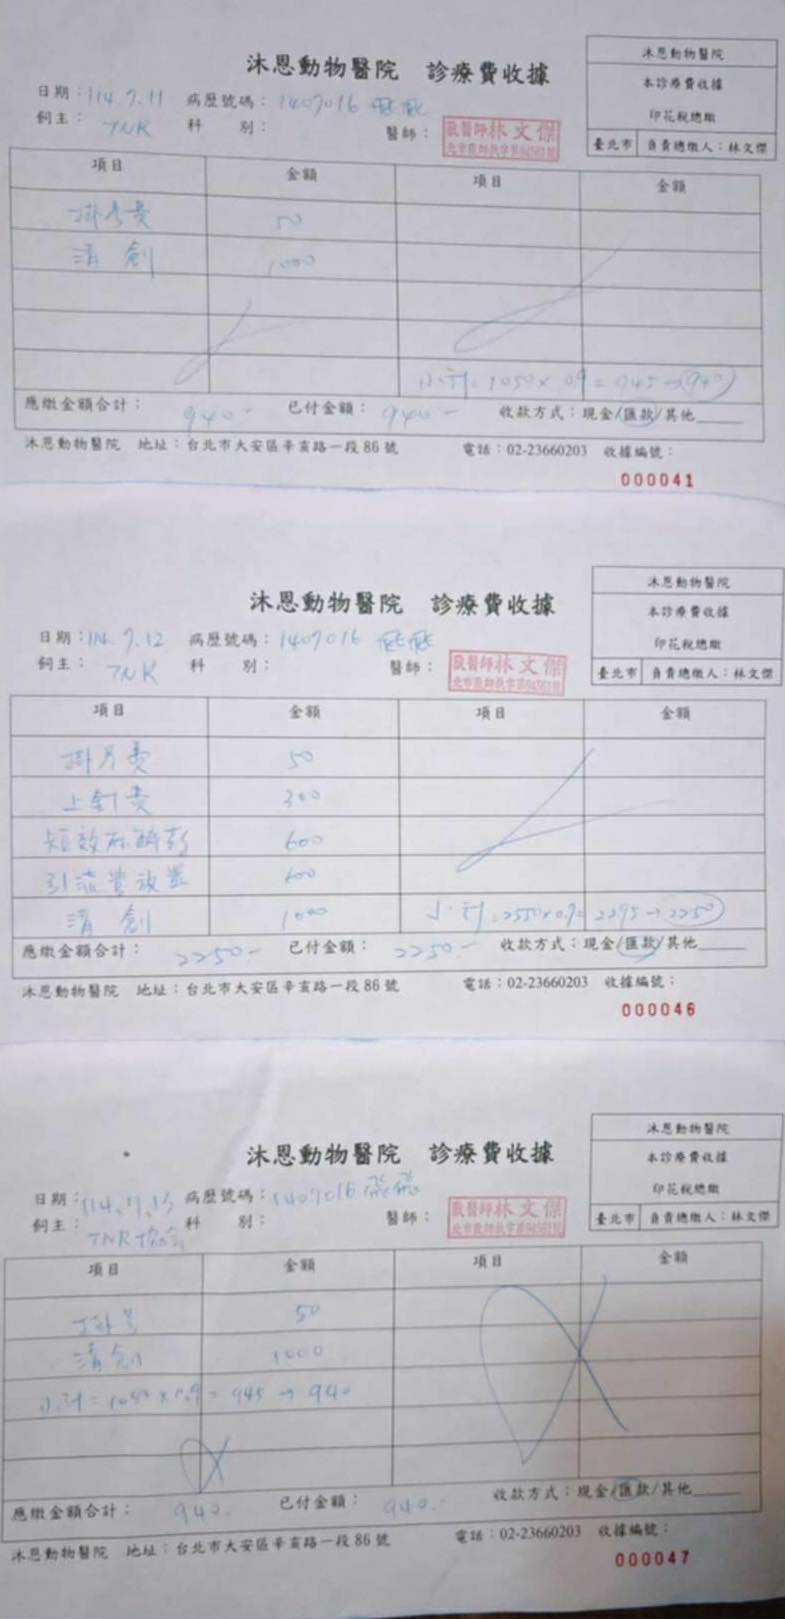 沐恩動物醫院 診療費收據
沐恩動物醫院
本診療費收據
印花稅總繳
臺北市 負責總繳人：林文傑
日期：114.7.11 病歷號碼：1407016
飼主：TNR 科 別： 醫師： 獸醫師林文傑
項目 金額 項目 金額
掛號費 50
清創 1000
小計：1050×0.9=945→940
應繳金額合計：940- 已付金額：940- 收款方式：現金/匯款/其他
沐恩動物醫院 地址：台北市大安區辛亥路一段86號 電話：02-23660203 收據編號：
000041
沐恩動物醫院 診療費收據
沐恩動物醫院
本診療費收據
印花稅總繳
臺北市 負責總繳人：林文傑
日期：114.7.12 病歷號碼：1407016
飼主：TNR 科 別： 醫師： 獸醫師林文傑
項目 金額 項目 金額
掛號費 50
上針費 300
短效麻醉 600
引流管放置 600
清創 1000 小計：2550×0.9=2295→2250
應繳金額合計：2250- 已付金額：2250- 收款方式：現金/匯款/其他
沐恩動物醫院 地址：台北市大安區辛亥路一段86號 電話：02-23660203 收據編號：
000046
沐恩動物醫院 診療費收據
沐恩動物醫院
本診療費收據
印花稅總繳
臺北市 負責總繳人：林文傑
日期：114.7.13 病歷號碼：1407016
飼主：TNR協會 科 別： 醫師： 獸醫師林文傑
項目 金額 項目 金額
掛號 50
清創 1000
小計=1050×0.9=945→940
應繳金額合計：940. 已付金額：940. 收款方式：現金/匯款/其他
沐恩動物醫院 地址：台北市大安區辛亥路一段86號 電話：02-23660203 收據編號：
000047